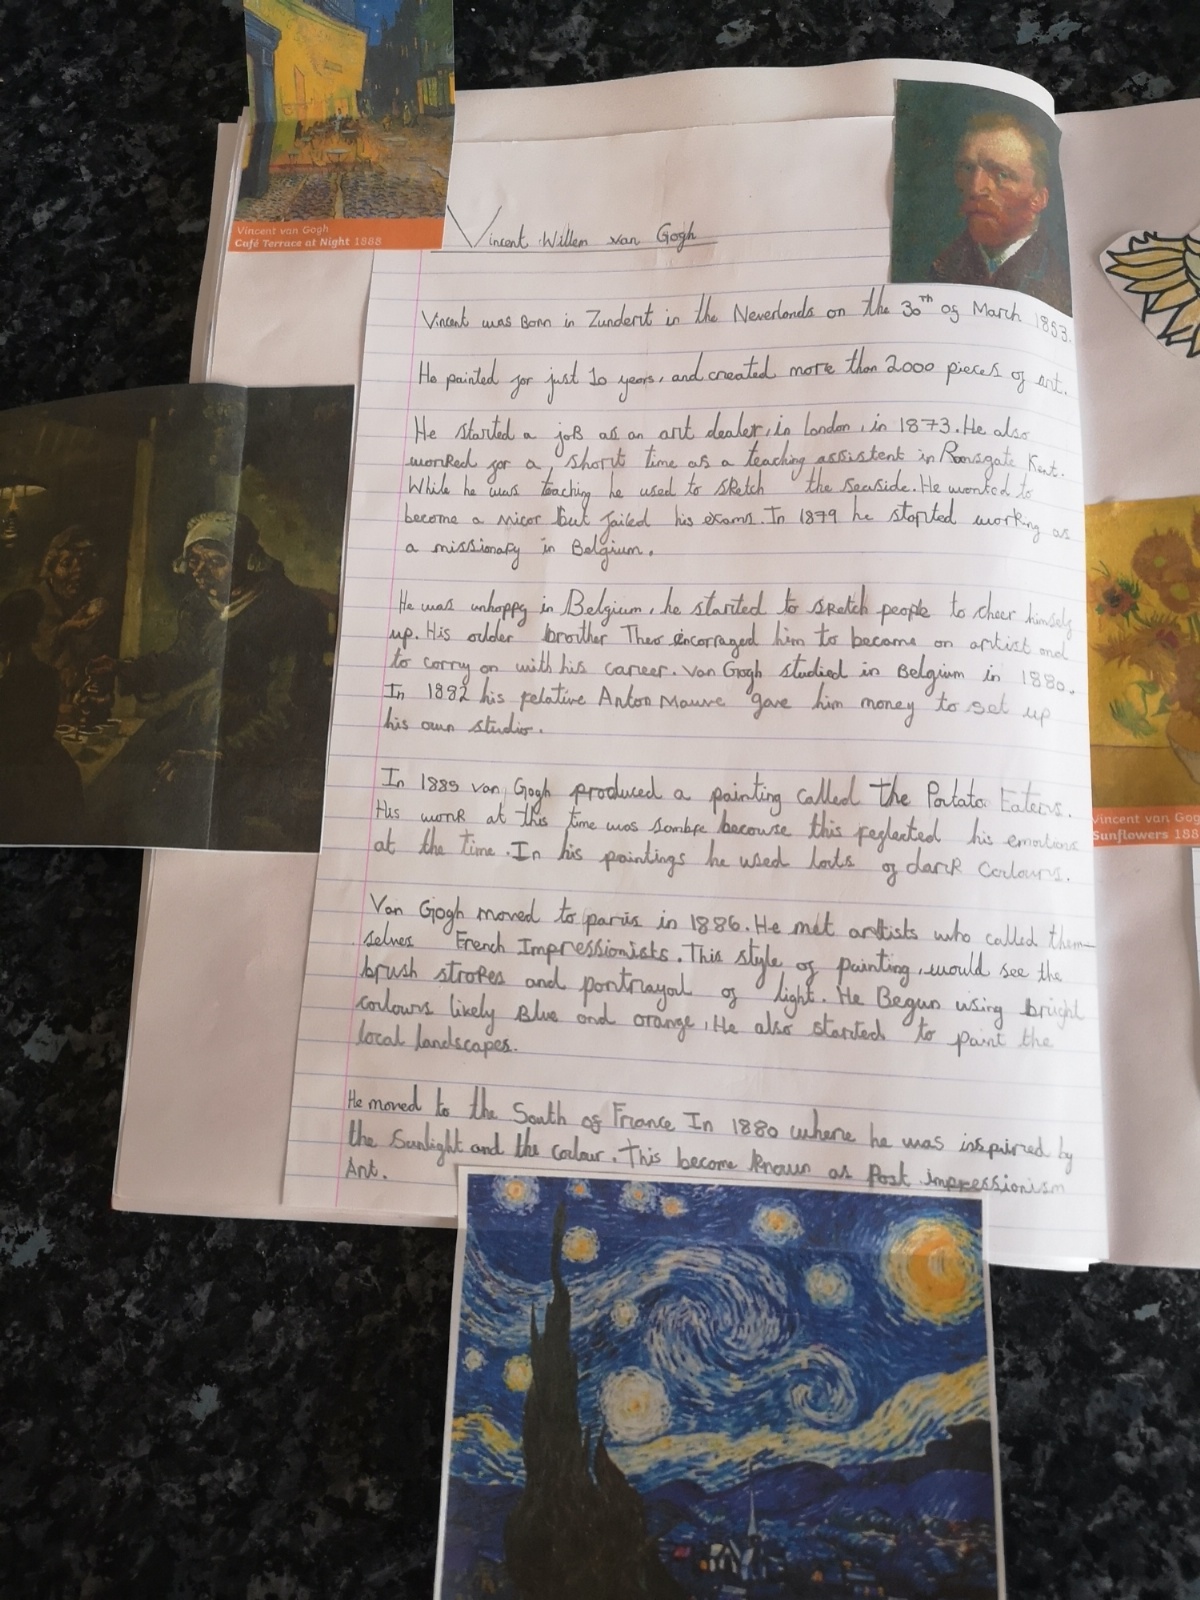 Vincent van Gogh
Café Terrace at Night 1888
Vincent Willem van Gogh
Vincent was Born in Zundert in the Neverlands on the 30th of March 1853.
He painted for just 10 years, and created more than 2000 pieces of art.
He started a joB as an art dealer, in london, in 1873. He also
worked for a short time as a teaching assistent in Ramsgate Kent.
While he was teaching he used to sketch the seaside. He wanted to
become a vicor But failed his exams. In 1879 he started working as
a missionary in Belgium.
He was unhappy in Belgium, he started to sketch people to cheer himself
up. His older brother Theo encorraged him to become an artist and
to carry on with his career. Van Gogh studied in Belgium in 1880.
In 1882 his relative Anton Mauve gave him money to set up
his own studio.
In 1885 van Gogh produced a painting called the Potato Eaters.
His work at this time was sombre becouse this reflected his emotions
at the time. In his paintings he used lots of dark Colours.
Van Gogh moved to paris in 1886. He met artists who called them-
selves French Impressionists. This style of painting, would see the
brush strokes and portrayal of light. He Begun using bright
colours likely Blue and orange, He also started to paint the
local landscapes.
He moved to the South of France In 1880 where he was inspired by
the Sunlight and the colour. This become known as Post impressionism
Art.
Vincent van Gog
Sunflowers 188